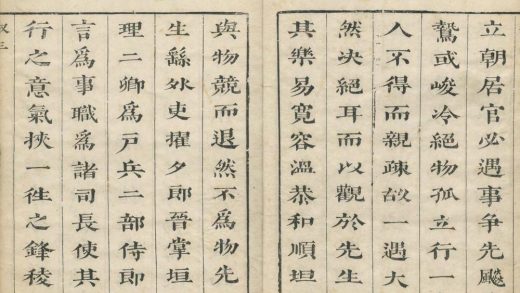 立朝居官必遇事争先飈
鶩或峻冷絕物孤立行一
人不得而親疎故一遇大
然决絕耳而以觀於先生
其樂易寬容溫恭和順坦
與物競而退然不爲物先
生繇外吏擢夕郎晉掌垣
理二卿爲戶兵二部侍郎
言爲事職爲諸司長使其
行之意氣挾一徃之鋒稜